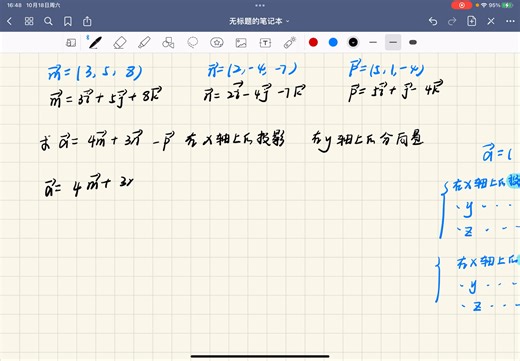 16:48 10月18日周六
95%
无标题的笔记本
m⃗=(3,5,8) n⃗=(2,-4,-7) p⃗=(5,1,-4)
m⃗=3i⃗+5j⃗+8k⃗ n⃗=2i⃗-4j⃗-7k⃗ p⃗=5i⃗+j⃗-4k⃗
求 a⃗=4m⃗+3n⃗-p⃗ 在x轴上的投影 在y轴上的分向量
a⃗=(
a⃗=4m⃗+3
在x轴上的投
·y·····
·z·····
在x轴上的
·y·····
·z·····